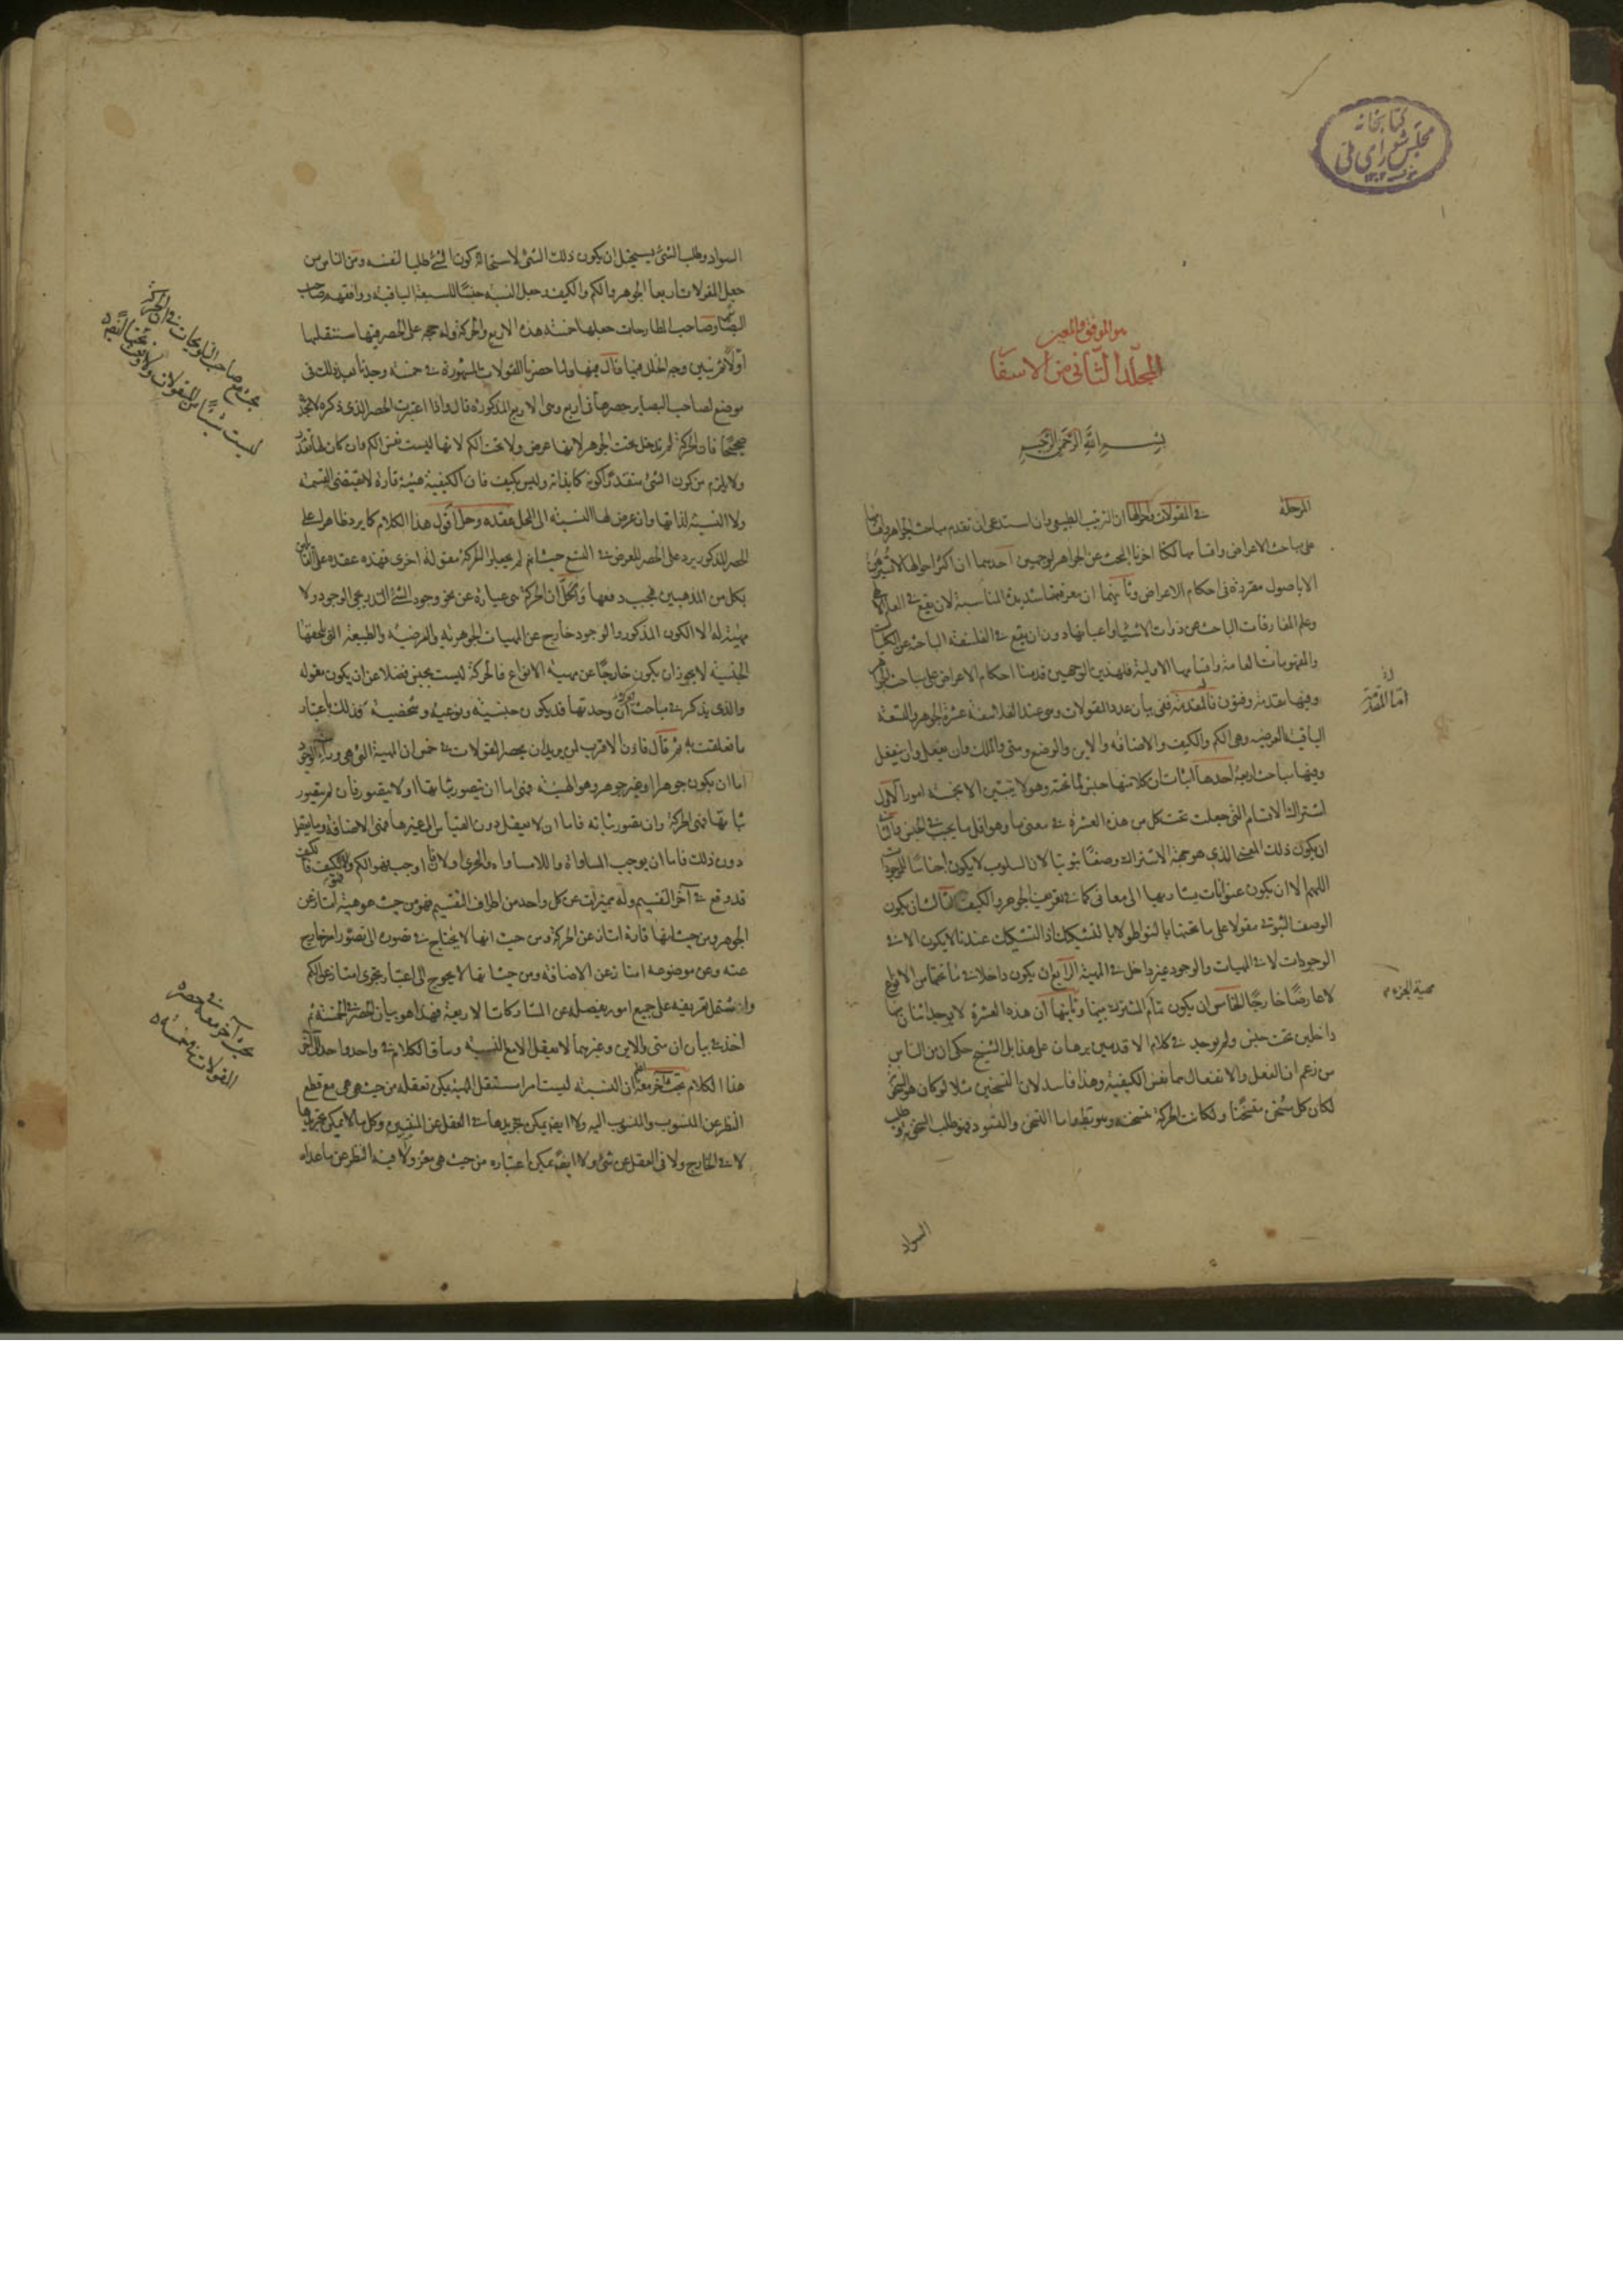 كتابخانه
مجلس شورای ملی
هو الموفق والمعين
المجلد الثانی من الاسفار
بسم الله الرحمن الرحيم
المرحلة فی المقولات واحوالها ان الترتيب الطبيعی وان استدعى ان تقدم مباحث الجواهر واقسامها
على مباحث الاعراض واقسامها لكنا اخرنا البحث عن الجواهر لوجهين احديهما ان اكثر احوالها لا تبرهن
الا باصول مقررة فی احكام الاعراض وثانيهما ان معرفتها شديدة المناسبة لان يقع فی العلم الالهی
وعلم المفارقات الباحث عن ذوات الاشياء واعيانها دون ان يقع فی الفلسفة الباحثة عن الكليات
والمفهومات العامة واقسامها الاولية فلهذين الوجهين قدمنا احكام الاعراض على مباحث الجواهر
وفيها مقدمة وفنون فالمقدمة ففی بيان عدد المقولات وهی عند الفلاسفة عشرة الجوهر والتسعة
اما المقدمة
الباقية العرضية وهی الكم والكيف والاضافه والاين والوضع ومتى والملك وان يفعل وان ينفعل
وفيها مباحث اربعة احدها اثبات ان كلا منها جنس لما تحته وهو لا يتبين الا بخمسه امور الاول
اشتراك الاقسام التی جعلت تحت كل من هذه العشرة فی معنى ما وهو اقل ما يجب فی الجنس والثانی
ان يكون ذلك المعنى الذی هو جهة الاشتراك وصفًا ثبوتيا لان السلوب لا يكون اجناسًا للموجودات
اللهم الا ان يكون عنوانات يشار بها الى معانی كما فی تعريف الجوهر والكيف الثالث ان يكون
الوصف الثبوتی مقولا على ما تحتها بالتواطؤ لا بالتشكيك اذ التشكيك عندنا لا يكون الا فی
الوجودات لا فی المهيات والوجود غير داخل فی المهية الرابع ان يكون داخلا فی ما تحتها من الانواع
لا عارضًا خارجًا الخامس ان يكون تمام المشترك بينها وثانيها ان هذه العشرة لا يوجد اثنان منها
داخلين تحت جنس ولم يوجد فی كلام الاقدمين برهان على هذا بل الشيخ حكى ان من الناس
من زعم ان الفعل والانفعال هما نفس الكيفية وهذا فاسد لان التسخين مثلا لو كان هو السخونة
لكان كل سخن مسخنًا ولكانت الحركة سخونة وهو باطل واما التسخن والتسود فهو طلب السخونة وطلب
السواد
السواد وطلب الشئ يستحيل ان يكون ذلك الشئ لاستحالة كون الشئ طلبا لنفسه ومن الناس من
جعل المقولات اربعا الجوهر والكم والكيف وجعل النسبة جنسًا للسبعة الباقية ووافقهم صاحب
البصائر وصاحب المطارحات جعلها خمسة هذه الاربع والحركة وله حجة على الحصر فيها سننقلها
اولا ثم نبين وجه الخلل فيها قال فيها ولما حصرنا المقولات المشهورة فی خمسة وجدنا بعد ذلك فی
موضع لصاحب البصاير حصرها فی اربع وهی الاربع المذكورة قال واذا اعتبرت الحصر الذی ذكره لا تجده
صحيحًا فان الحركة لم تدخل تحت الجوهر لانها عرض ولا تحت الكم لانها ليست نفس الكم وان كان لها تقدر
بحث مع صاحب التلويحات فی ان الحركة
ليست شيئًا من المقولات
ولا يلزم من كون الشئ متقدرًا كونه كما بذاته وليس بكيف فان الكيفية هيئة قارة لا تقتضى القسمة
ولا النسبة لذاتها وان عرض لها النسبة الى المحل عقده وحل اقول هذا الكلام كما يرد ظاهرا على
الحصر المذكور يرد على الحصر للعرض فی التسع حيث انهم لم يجعلوا الحركة مقوله اخرى فهذه عقده على القائلين
بكل من المذهبين فيجب دفعها وتحل ان الحركة هی عبارة عن نحو وجود الشئ التدريجی الوجود ولا
مهية له الا الكون المذكور والوجود خارج عن المهيات الجوهرية والعرضية والطبيعة التی تلحقها
الجنسية لا يجوز ان يكون خارجًا عن مهية الانواع فالحركة ليست بجنس فضلا عن ان يكون مقوله
والذی يذكر فی مباحث الحركة ان وحدتها قد يكون جنسية ونوعية وشخصية فذلك باعتبار
ما تعلقت به ثم قال فاذن الاقرب لمن يريدان يحصر المقولات فی خمس ان المهية التی هی وراء الوجود
اما ان يكون جوهرا او غير جوهر وهو الهيئة فهی اما ان يتصور ثباتها او لا يتصور فان لم يتصور
ثباتها فهی الحركة وان يتصور ثباته فاما ان لا يعقل دون القياس الى غيرها فهی الاضافة وما يعقل
دون ذلك فاما ان يوجب المساواة واللامساواه والتجزی او لا فان اوجب فهو الكم والا فكيف
قد وقع فی آخر التقسيم وله مميزات عن كل واحد من اطراف التقسيم فهو من حيث هو هيئة امتاز عن
الجوهر ومن حيث انها قارة امتاز عن الحركة ومن حيث انها لا يحتاج فی تصوره الى تصور امر خارج
عنه وعن موضوعه امتاز عن الاضافه ومن حيث انها لا يحوج الى اعتبار تجزى امتاز عن الكم
وان يشتمل تعريفه على جميع امور يفصله عن المشاركات الاربعة فهذا هو بيان الحصر فی الخمسة ثم
بحث آخر معه فی حصره
المقولات فی خمسة
اخذ فی بيان ان متى والاين وغيرهما لا يعقل الا مع النسبة وساق الكلام فی واحد واحد الى آخر
هذا الكلام بحث آخر معه ان النسبة ليست امرا مستقل المهية يمكن تعقله من حيث هی هی مع قطع
النظر عن المنسوب والمنسوب اليه ولا ايضا يمكن تجريدها فی العقل عن المنتسبين وكل ما لا يمكن تجريدها
لا فی الخارج ولا فی العقل عن شئ ولا ايضا يمكن اعتباره من حيث هی معزولا فيه النظر عن ما عداه